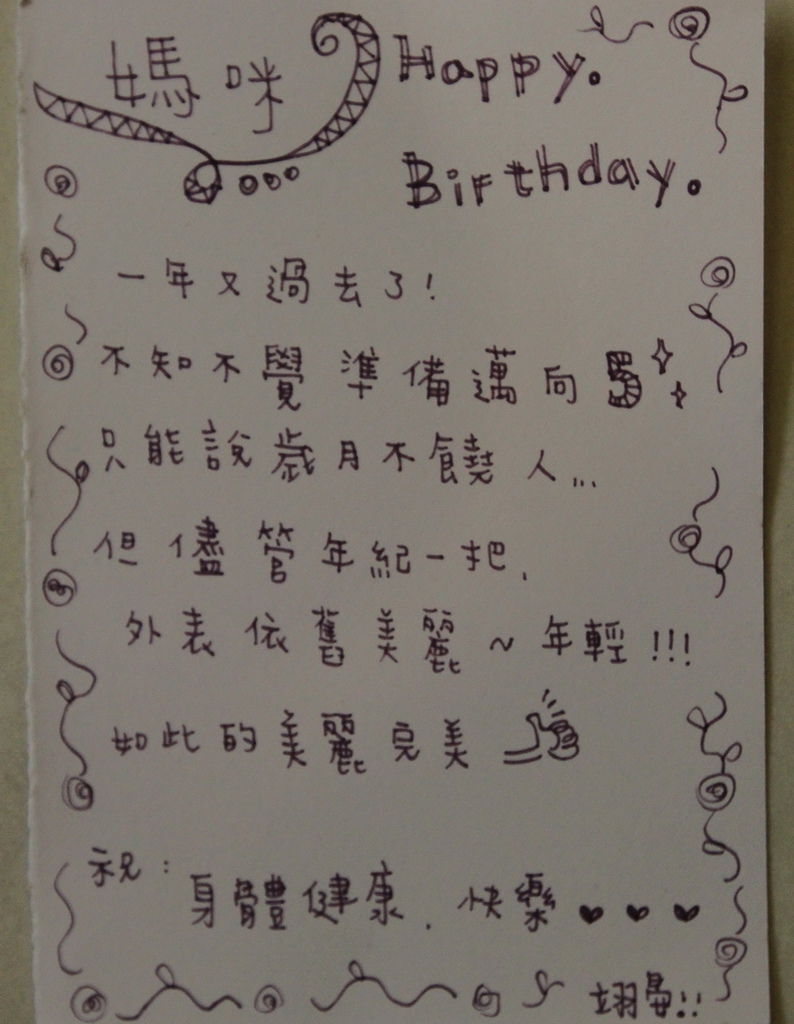 媽咪 Happy.
Birthday.
一年又過去了!
不知不覺準備邁向5
只能說歲月不饒人...
但儘管年紀一把,
外表依舊美麗~年輕!!!
如此的美麗完美
祝:
身體健康.快樂♥♥♥
翊晏!!